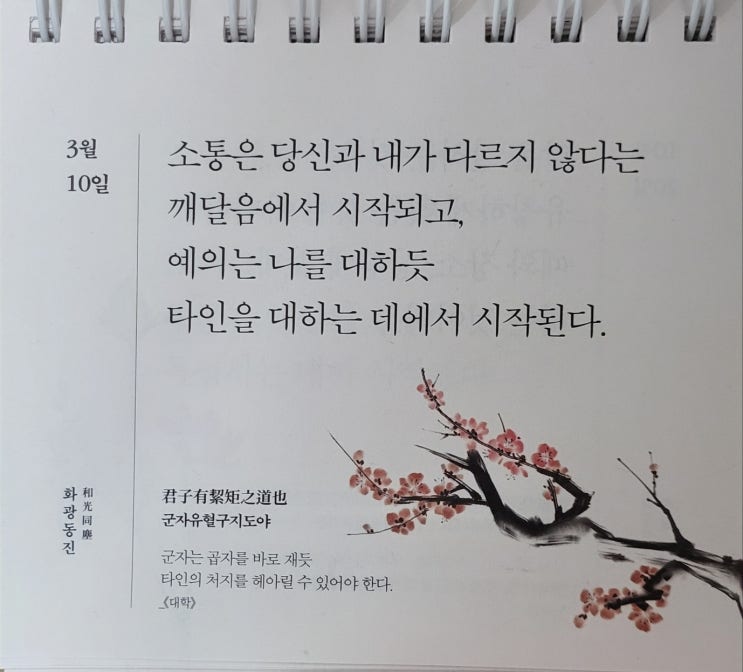 3월
10일
소통은 당신과 내가 다르지 않다는
깨달음에서 시작되고,
예의는 나를 대하듯
타인을 대하는 데에서 시작된다.
和光同塵
화광동진
君子有絜矩之道也
군자유혈구지도야
군자는 곱자를 바로 재듯
타인의 처지를 헤아릴 수 있어야 한다.
_《대학》